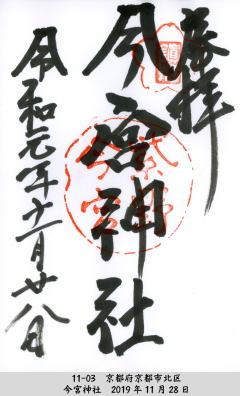 奉拝
今宮神社
令和元年十一月廿八日
11-03 京都府京都市北区
今宮神社 2019年11月28日